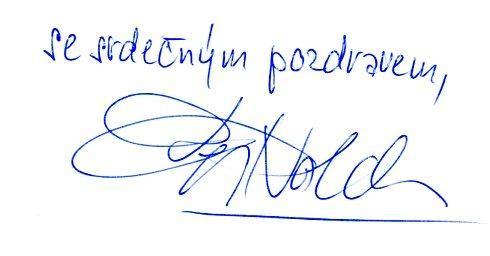 se srdečným pozdravem,